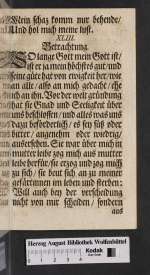 Mein schaz komm nur behende/
Und hol mich meine lust.
XLIII.
Betrachtung
So lange Gott mein Gott ist/
ist er ja mein höchstes gut: und
seine güte hat von ewigkeit her/ wie
an alle/ also an mich gedacht/ ehe
ich an ihn. Vor der welt gründung
hat sie Gnad und Seeligkeit über
uns beschlossen/ und alles was uns
dazu beförderlich/ es sey süß oder
bitter/ angenehm oder widrig/
ausersehen. Sie war über mich in
mutter leibe/ zog mich aus mutter
leibe herfür/ sie erzog und zog mich
zu sich/ sie beut sich an zu meinem
gefärtinnen im leben und sterben:
Will auch bey der verscheidung
nicht von mir scheiden/ sondern
aus
Herzog August Bibliothek Wolfenbüttel
Kodak